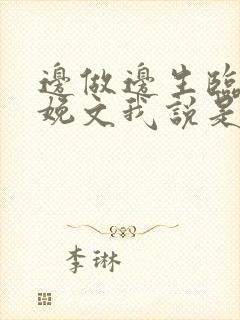 邊做邊生臨
娩文我說是
李琳